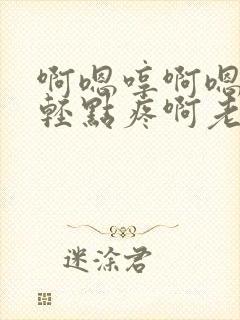 啊嗯哼啊嗯
輕點疼啊老
迷涂君